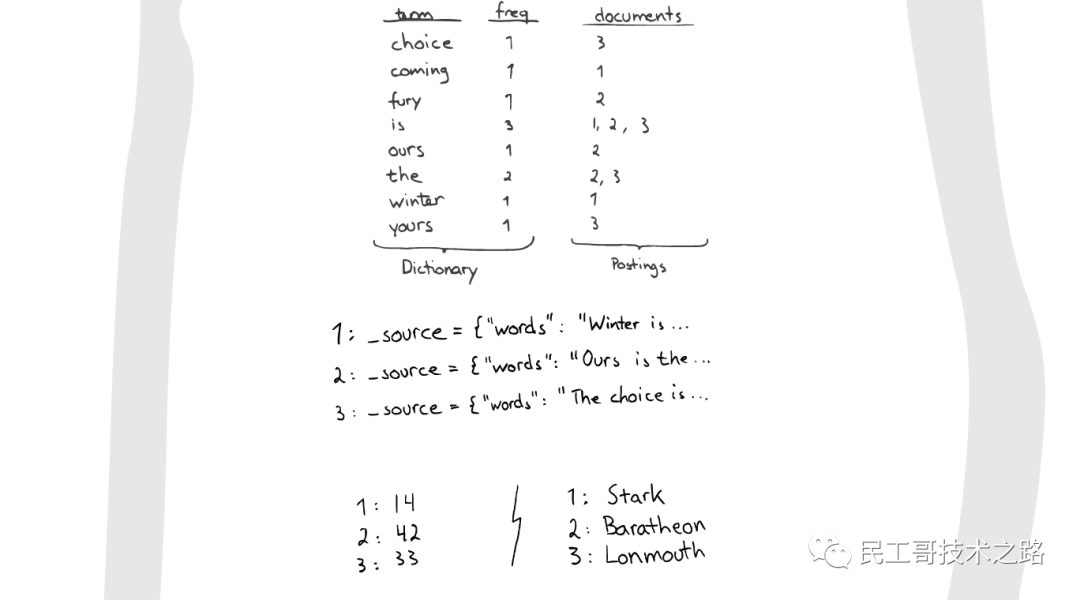 term freq documents
choice 1 3
coming 1 1
fury 1 2
is 3 1, 2, 3
ours 1 2
the 2 2, 3
winter 1 1
yours 1 3
Dictionary Postings
1: _source = {"words": "Winter is ...
2: _source = {"words": "Ours is the ...
3: _source = {"words": "The choice is ...
1: 14 1: Stark
2: 42 2: Baratheon
3: 33 3: Lonmouth
民工哥技术之路